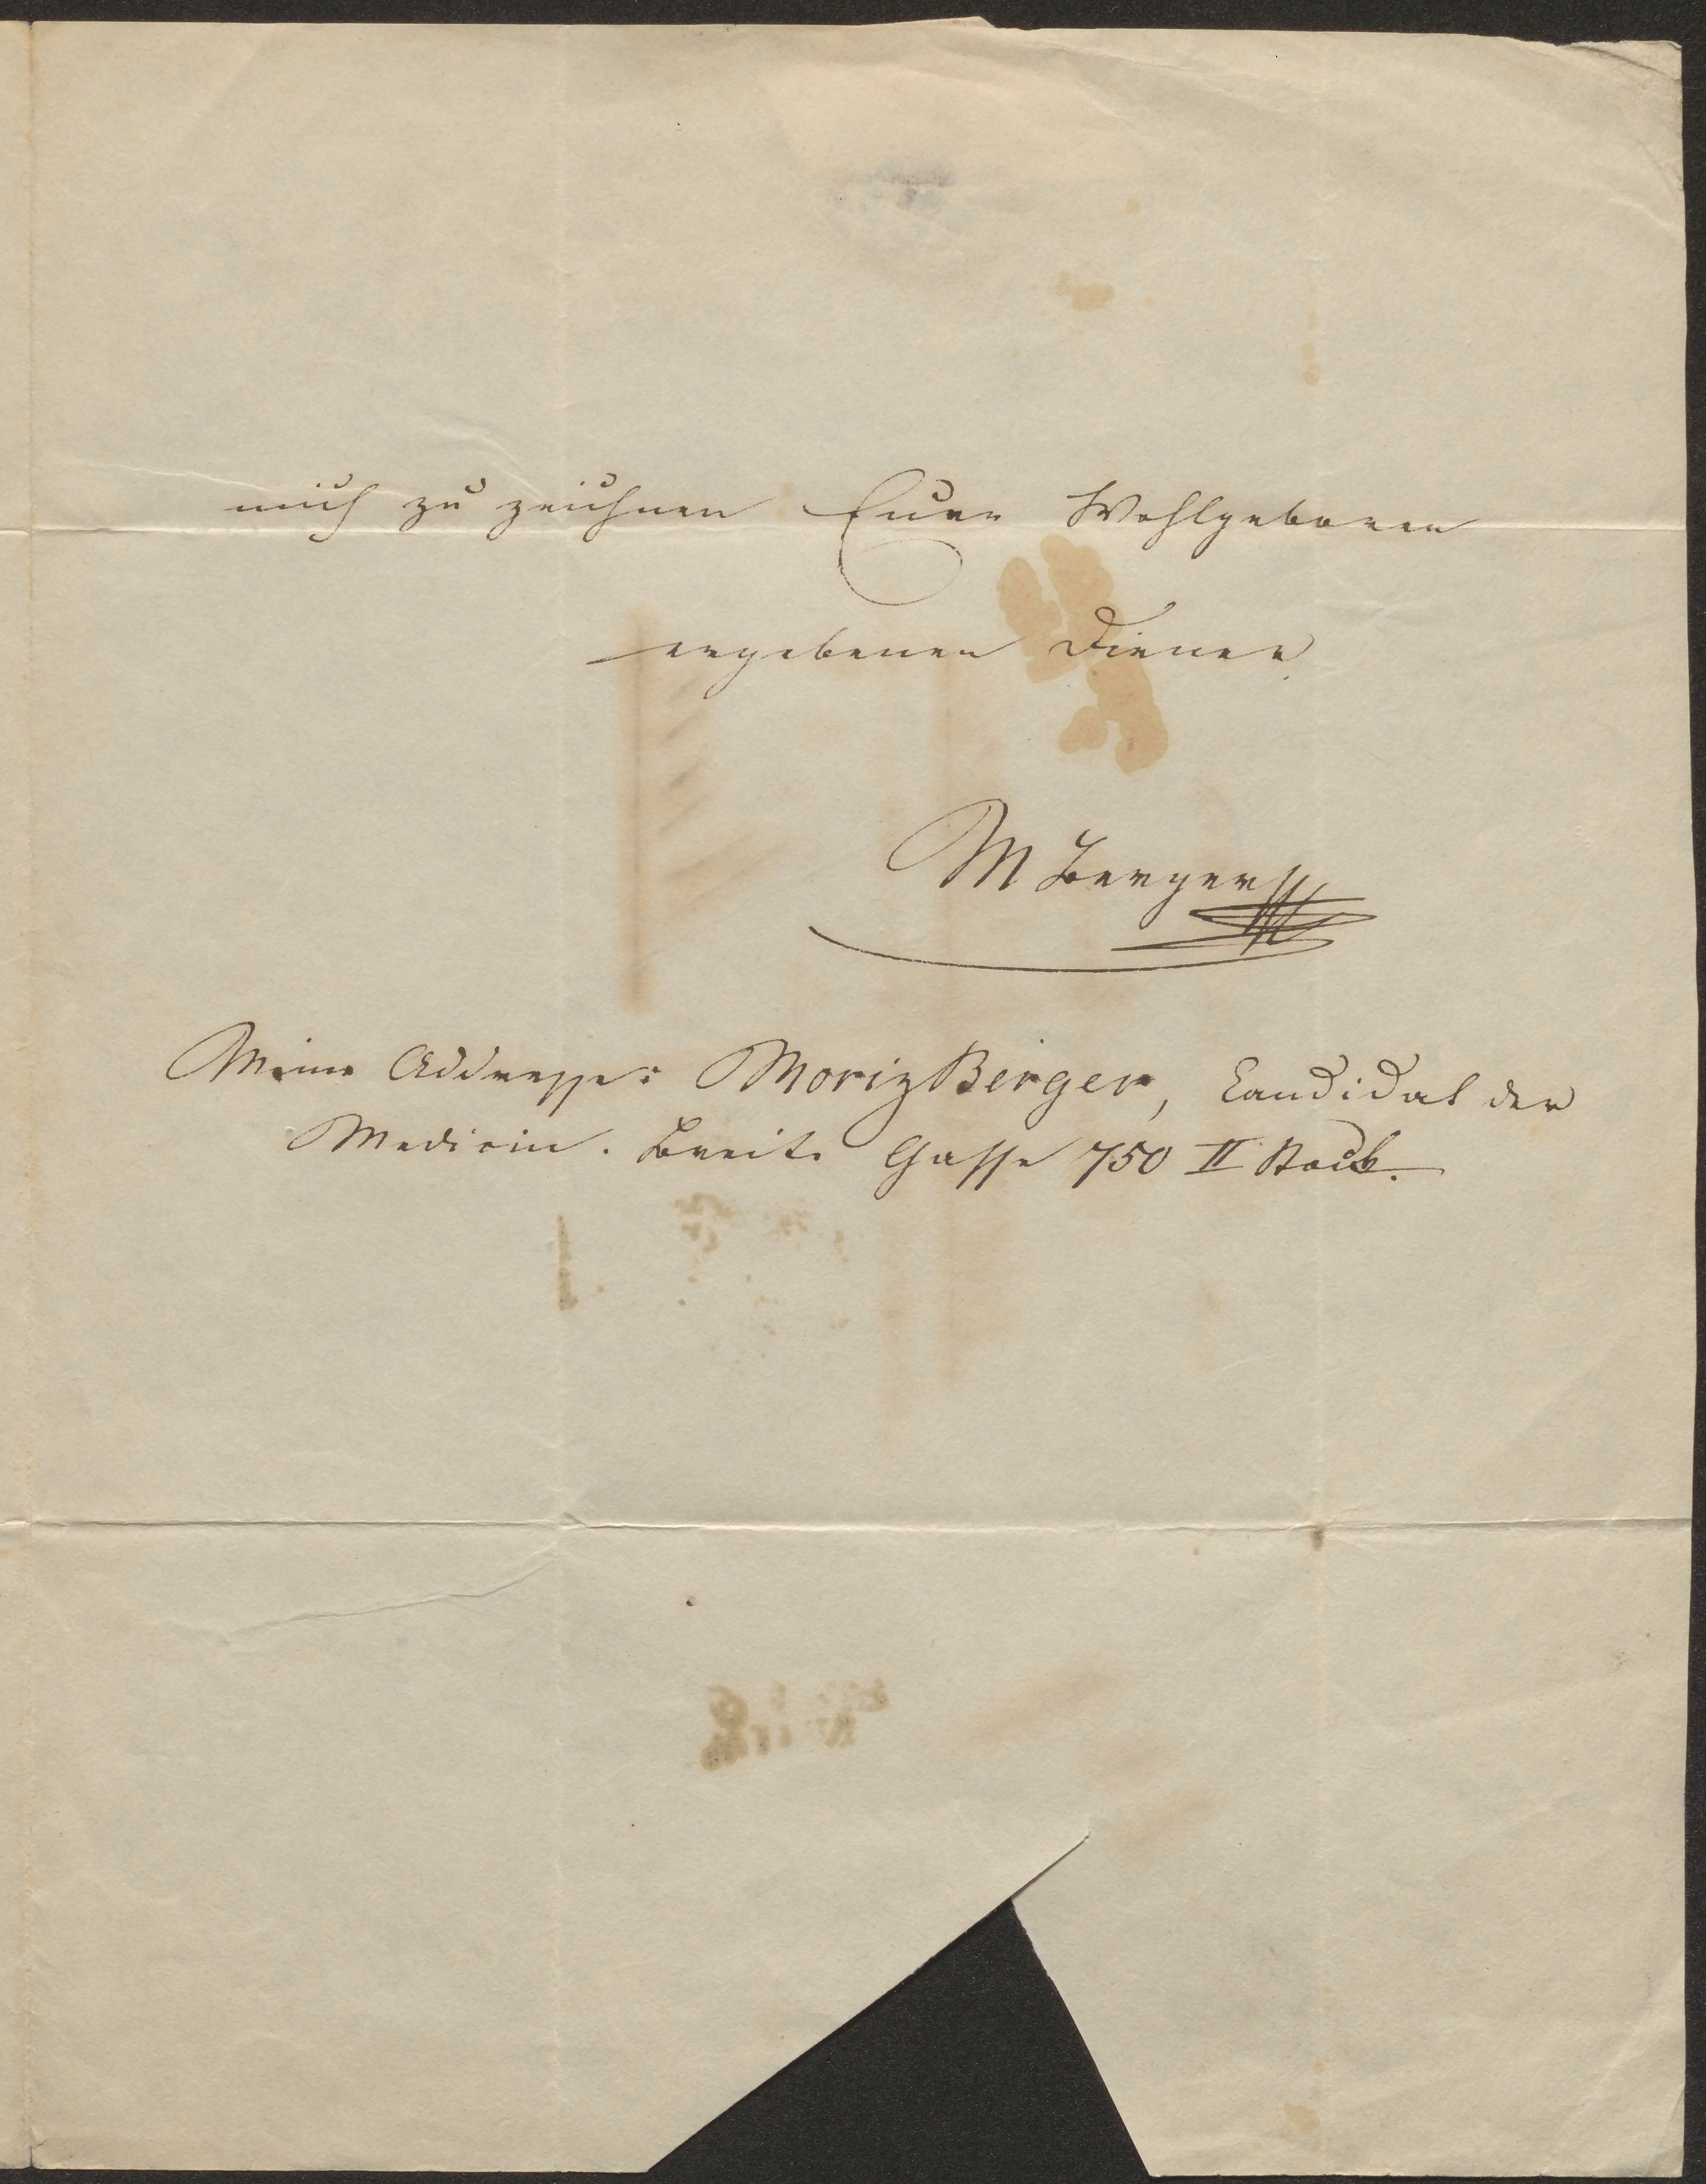 mich zu zeichnen Euer Wohlgeboren
ergebener Diener
M Berger
Meine Addresse: Moriz Berger, Candidat der
Medicin. Breite Gasse 750 II Stock.